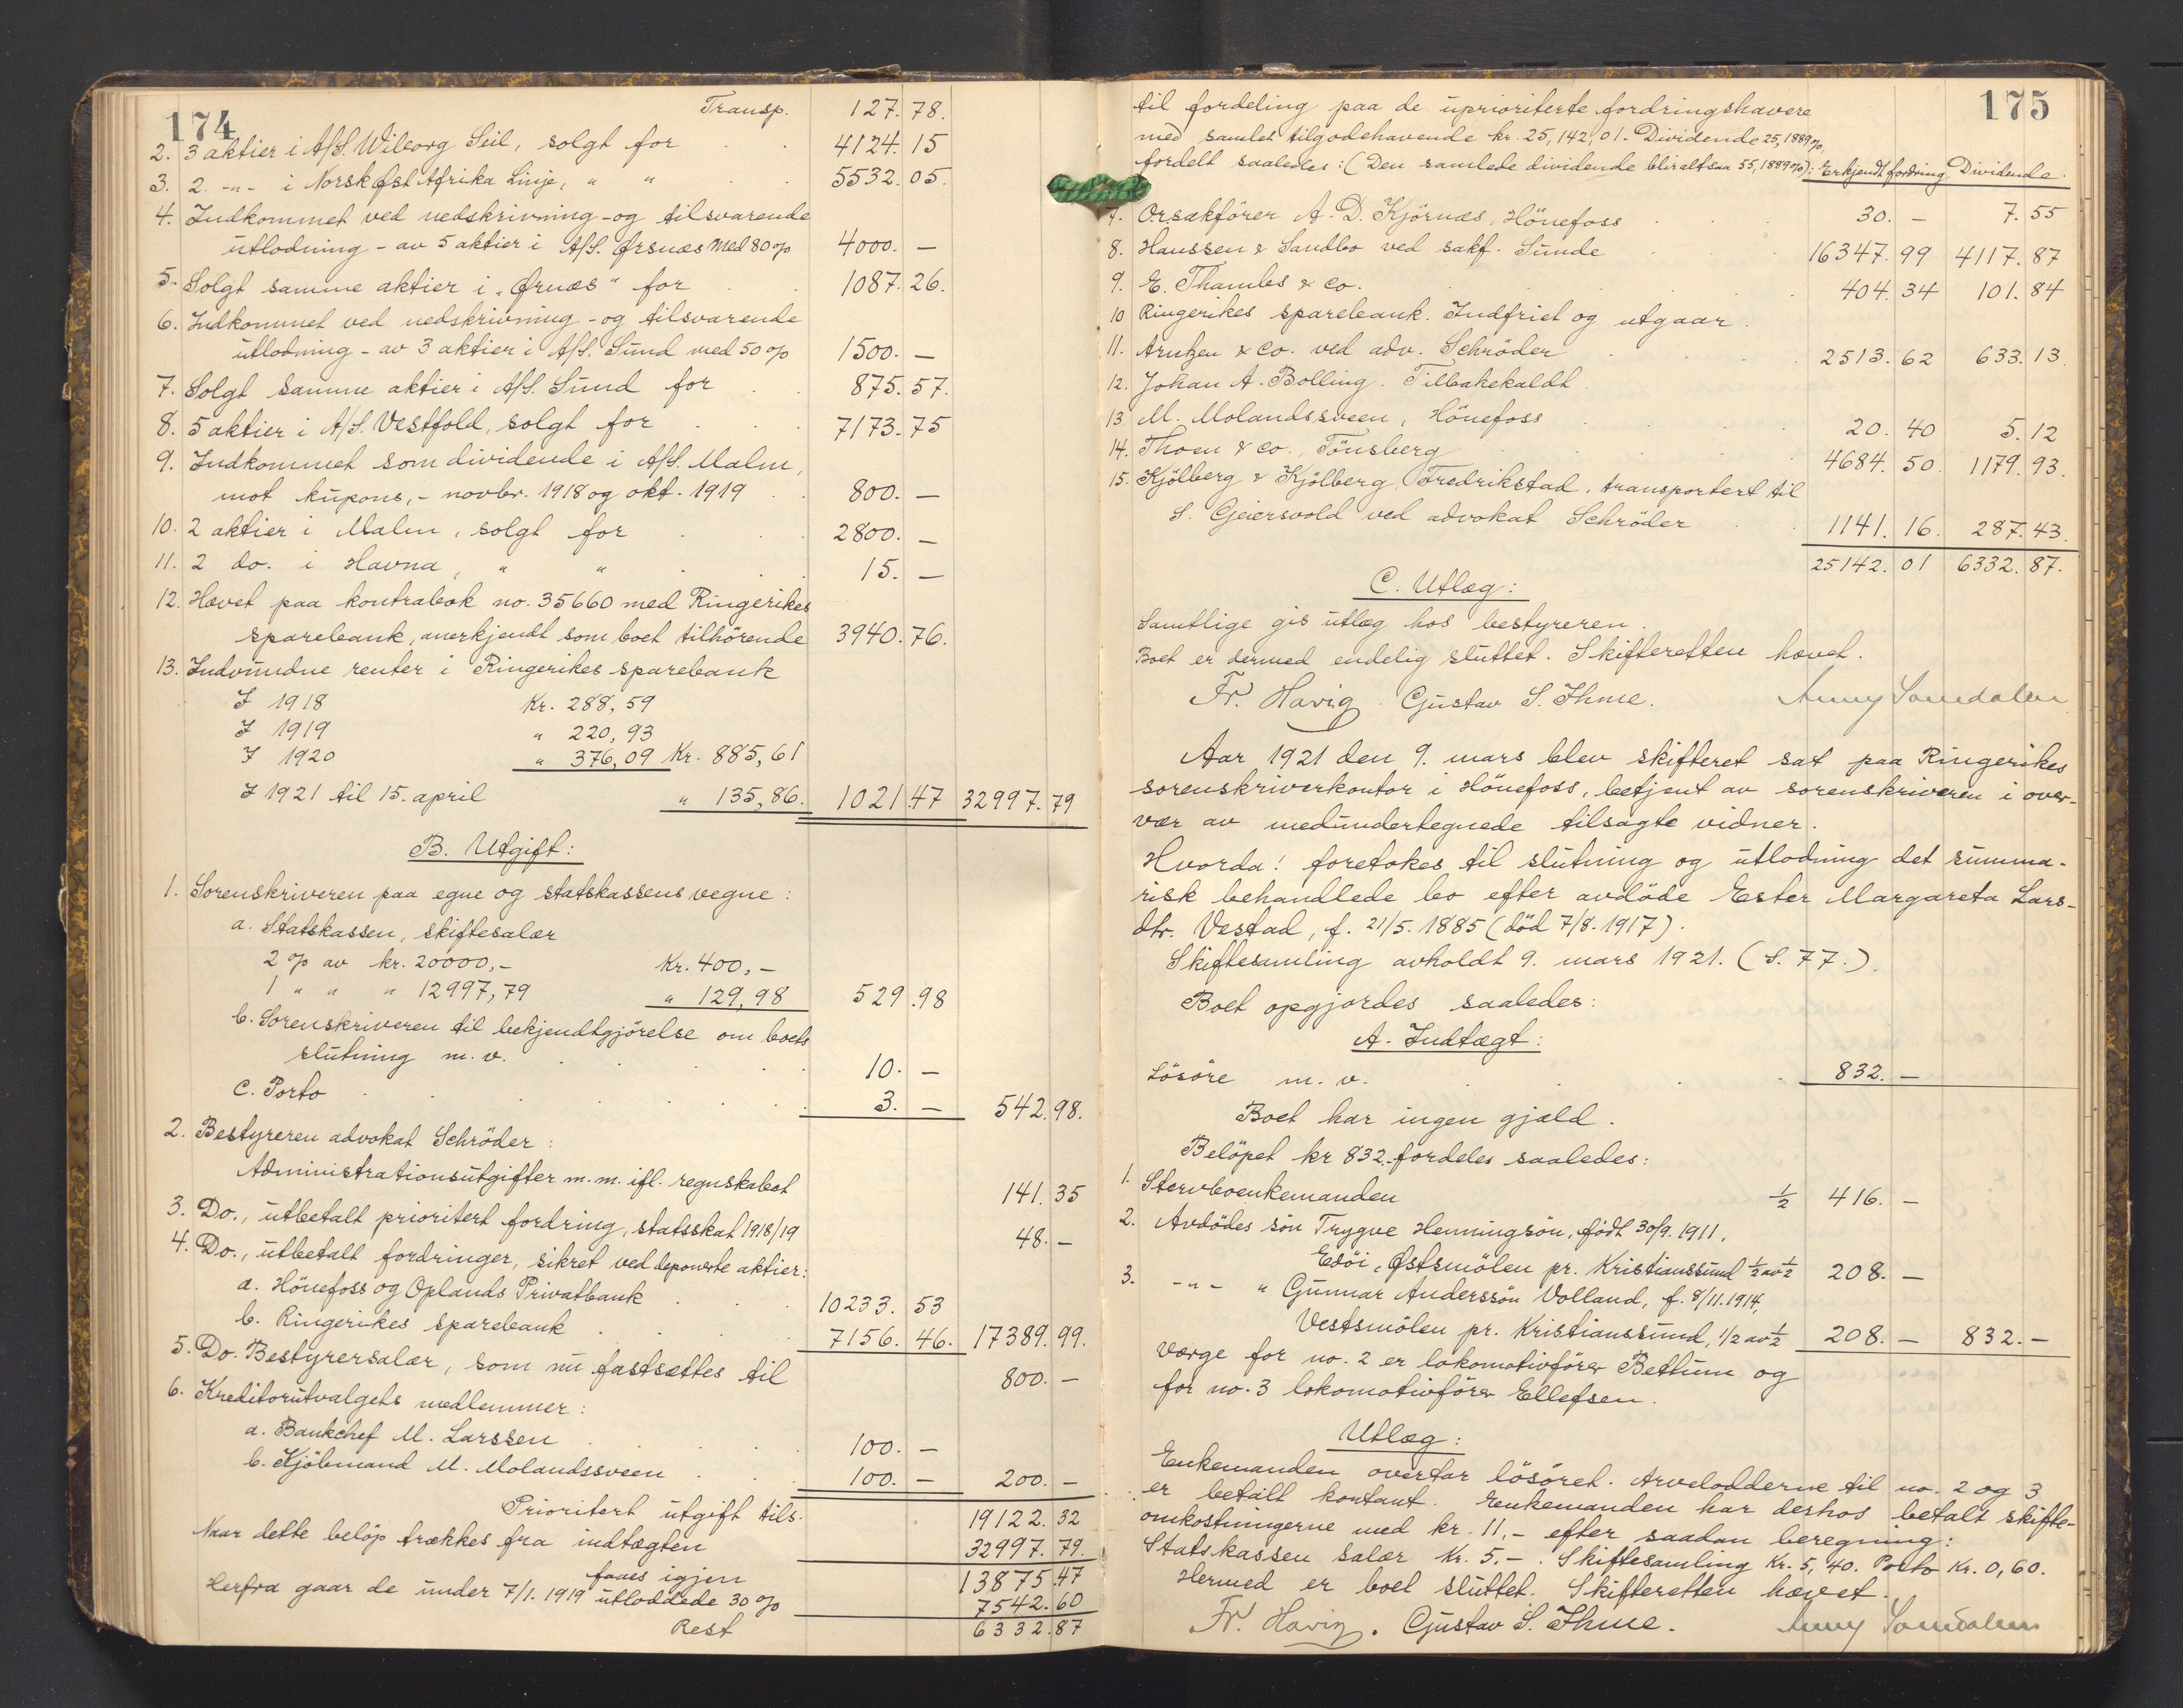 174
Transp. 127.78.
2. 3 aktier i A/S. Wiborg Seil, solgt for 4124.15
3. 2 -"- i Norsk Øst Afrika Linje, " " 5532.05.
4. Indkommet ved nedskrivning - og tilsvarende
utlodning - av 5 aktier i A/S. Ørsnæs med 80 % 4000. —
5. Solgt samme aktier i "Ørnæs" for 1087.26.
6. Indkommet ved nedskrivning - og tilsvarende
utlodning - av 3 aktier i A/S. Sund med 50 % 1500. —
7. Solgt samme aktier i A/S. Sund for 875.57.
8. 5 aktier i A/S. Vestfold, solgt for 7173.75
9. Indkommet som dividende i A/S. Malm,
mot kupons, - novbr. 1918 og okt. 1919 800. —
10. 2 aktier i Malm, solgt for 2800. —
11. 2 do. i Havna, " " 15. —
12. Hævet paa kontrabok no. 35660 med Ringerikes
sparebank, anerkjendt som boet tilhörende 3940.76.
13. Indvundne renter i Ringerikes sparebank
I 1918 Kr. 288,59
I 1919 " 220,93
I 1920 " 376,09 Kr. 885,61
I 1921 til 15. april " 135,86. 1021.47 32997.79
B. Utgift:
1. Sorenskriveren paa egne og statskassens vegne:
a. Statskassen, skiftesalær
2 % av kr. 20000,- Kr. 400,-
1 " " " 12997,79 " 129,98 529.98
b. Sorenskriveren til bekjendtgjörelse om boets
slutning m. v. 10. —
c. Porto 3. — 542.98.
2. Bestyreren advokat Schröder:
Administrationsutgifter m. m. ifl. regnskabet 141.35
3. Do., utbetalt prioritert fordring, statsskat 1918/19 48. —
4. Do., utbetalt fordringer, sikret ved deponerte aktier:
a. Hönefoss og Oplands Privatbank 10233.53
b. Ringerikes sparebank 7156.46. 17389.99.
5. Do. Bestyrersalær, som nu fastsættes til 800. —
6. Kreditorutvalgets medlemmer:
a. Bankchef M. Larssen 100. —
b. Kjöbmand M. Molandssveen 100. — 200. —
Prioritert utgift tils. 19122.32
Naar dette belöp trækkes fra indtægten 32997.79.
faaes igjen 13875.47
Herfra gaar de under 7/1. 1919 utloddede 30 % 7542.60
Rest 6332.87
175
til fordeling paa de uprioriterte fordringshavere
med samlet tilgodehavende kr. 25,142,01. Dividende 25,1889 %,
fordelt saaledes: (Den samlede dividende blir altsaa 55,1889 %): Erkjendt fordring Dividende.
7. Orsakförer A. D. Kjörnæs, Hönefoss 30. — 7.55
8. Hanssen & Sandbo ved sakf. Sunde 16347.99 4117.87
9. E. Thambs & Co. 404.34 101.84
10 Ringerikes sparebank. Indfriet og utgaar.
11. Arntzen & Co. ved adv. Schröder 2513.62 633.13.
12. Johan A. Bolling. Tilbakekaldt
13 M. Molandssveen, Hönefoss 20.40 5.12
14. Thoen & Co., Tönsberg 4684.50. 1179.93.
15. Kjölberg & Kjölberg Fredrikstad, transportert til
S. Geiersvold ved advokat Schröder 1141.16. 287.43.
25142.01 6332.87.
C. Utlæg:
Samtlige gis utlæg hos bestyreren.
Boet er dermed endelig sluttet. Skifteretten hævet.
Fr. Havig. Gustav S. Ihme. Anny Somdalen
Aar 1921 den 9. mars blev skifteret sat paa Ringerikes
sorenskriverkontor i Hönefoss, betjent av sorenskriveren i over-
vær av medundertegnede tilsagte vidner.
Hvorda! foretokes til slutning og utlodning det summa-
risk behandlede bo efter avdöde Ester Margareta Lars-
dtr. Vestad, f. 21/5. 1885 (död 7/8. 1917).
Skiftesamling avholdt 9. mars 1921. (S. 77.).
Boet opgjordes saaledes:
A. Indtægt:
Lösöre m. v. 832. —
Boet har ingen gjæld.
Belöpet kr 832.- fordeles saaledes:
1. Stervboenkemanden 1/2 416. —
2. Avdödes sön Trygve Henningsön, födt 30/9. 1911,
Edöi, Østsmölen pr. Kristianssund 1/2 av 1/2 208. —
3. -"- " Gunnar Anderssön Volland, f. 8/11. 1914,
Vestsmölen pr. Kristianssund, 1/2 av 1/2 208. — 832. —
Værge for no. 2 er lokomotivförer Bettum og
for no. 3 lokomotivförer Ellefsen.
Utlæg:
Enkemanden overtar lösöret. Arvelodderne til no. 2 og 3
er betalt kontant. Enkemanden har derhos betalt skifte-
omkostningerne med kr. 11,- efter saadan beregning:
Statskassen salær Kr. 5,-. Skiftesamling Kr. 5,40. Porto Kr. 0,60.
Hermed er boet sluttet. Skifteretten hævet.
Fr. Havig. Gustav S. Ihme. Anny Somdalen